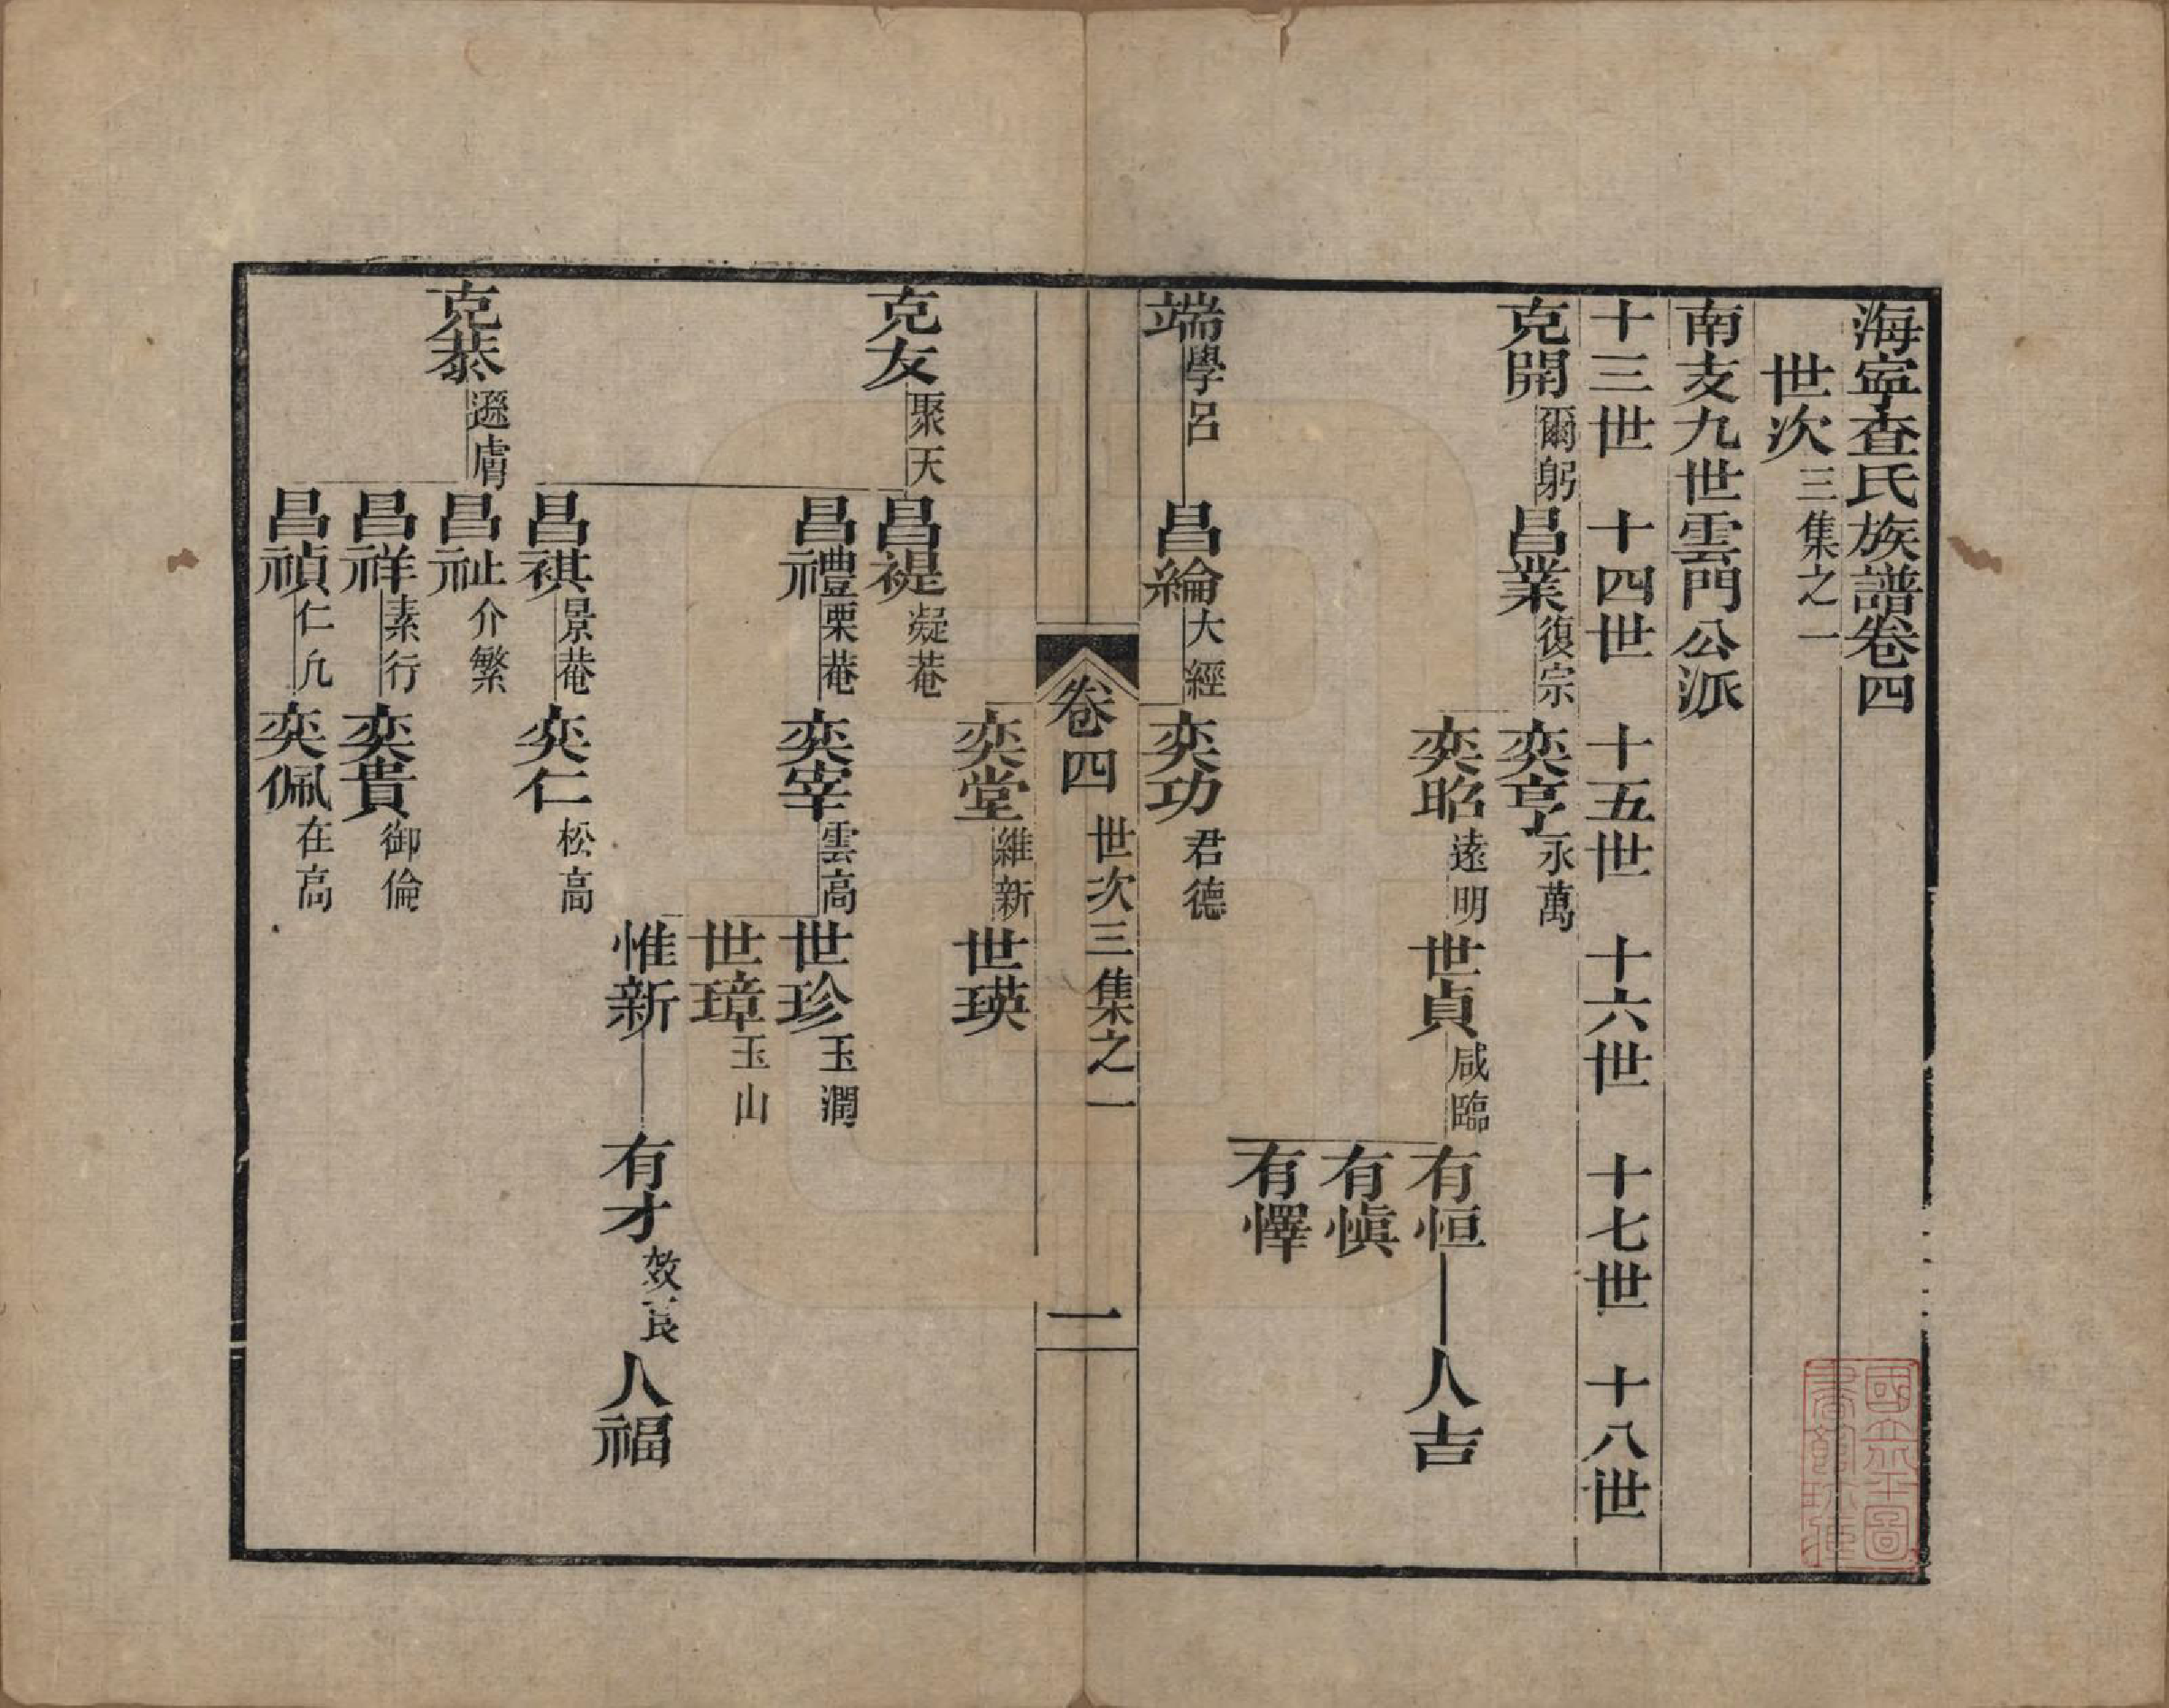 海寧查氏族譜卷四
世次三集之一
南支九世雲門公派
十三世 十四世 十五世 十六世 十七世 十八世
克開爾躬 昌業復宗 奕亨永萬
奕昭遠明 世貞咸臨 有恒 人吉
有愼
有懌
端學呂 昌綸大經 奕功君德
卷四 世次三集之一 一
奕堂維新 世瑛
克友聚天 昌禔凝菴
昌禮栗菴 奕宰雲高 世珍玉潤
世璋玉山
惟新 有才效良 人福
昌祺景菴 奕仁松高
克恭遜膚 昌祉介繁
昌祥素行 奕貴御倫
昌禎仁凢 奕佩在高
國立北平圖書館珍藏